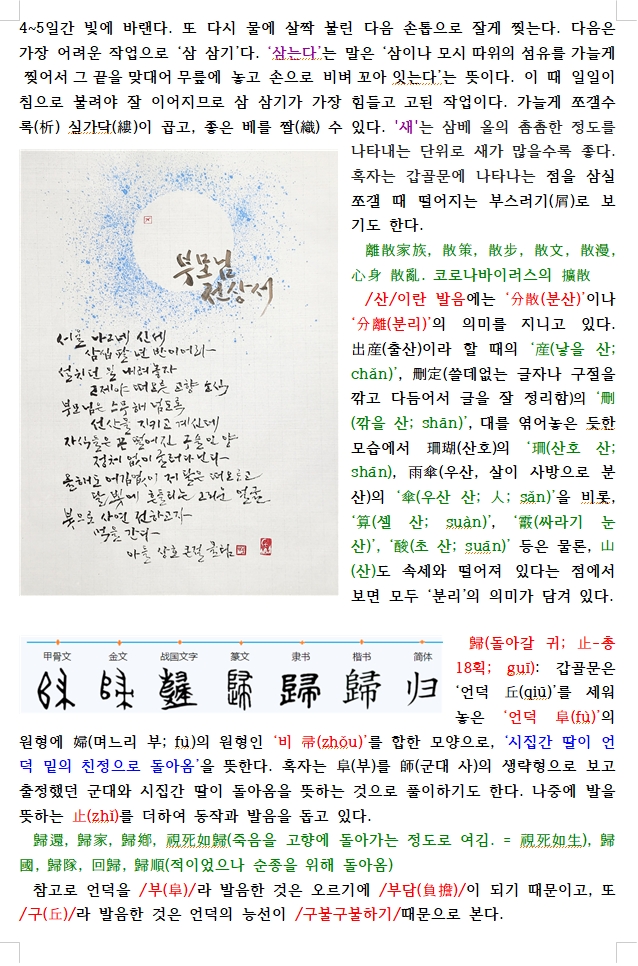 4~5일간 빛에 바랜다. 또 다시 물에 살짝 불린 다음 손톱으로 잘게 찢는다. 다음은
가장 어려운 작업으로 ‘삼 삼기’다. ‘삼는다’는 말은 ‘삼이나 모시 따위의 섬유를 가늘게
찢어서 그 끝을 맞대어 무릎에 놓고 손으로 비벼 꼬아 잇는다’는 뜻이다. 이 때 일일이
침으로 불려야 잘 이어지므로 삼 삼기가 가장 힘들고 고된 작업이다. 가늘게 쪼갤수
록(析) 실가닥(縷)이 곱고, 좋은 베를 짤(織) 수 있다. '새'는 삼베 올의 촘촘한 정도를
나타내는 단위로 새가 많을수록 좋다.
혹자는 갑골문에 나타나는 점을 삼실
쪼갤 때 떨어지는 부스러기(屑)로 보
기도 한다.
離散家族, 散策, 散步, 散文, 散漫,
心身 散亂. 코로나바이러스의 擴散
/산/이란 발음에는 ‘分散(분산)’이나
‘分離(분리)’의 의미를 지니고 있다.
出産(출산)이라 할 때의 ‘産(낳을 산;
chǎn)’, 刪定(쓸데없는 글자나 구절을
깎고 다듬어서 글을 잘 정리함)의 ‘刪
(깎을 산; shān)’, 대를 엮어놓은 듯한
모습에서 珊瑚(산호)의 ‘珊(산호 산;
shān), 雨傘(우산, 살이 사방으로 분
산)의 ‘傘(우산 산; 人; sǎn)’을 비롯,
‘算(셀 산; suàn)’, ‘霰(싸라기 눈
산)’, ‘酸(초 산; suān)’ 등은 물론, 山
(산)도 속세와 떨어져 있다는 점에서
보면 모두 ‘분리’의 의미가 담겨 있다.
부모님
전상서
서울 나그네 신세
삼십 팔 년 반이어라
설친던 일 내려놓자
그제야 떠오른 고향 소식
부모님은 스무 해 넘도록
선산을 지키고 계신데
자식들은 끈 떨어진 구슬인 양
정처 없이 굴러다닌다
올해도 어김없이 저 달은 떠오르고
달빛에 흔들리는 그리운 얼굴
붓으로 사연 전하고자
먹을 간다
아들 상호 큰절 올림
甲骨文 金文 战国文字 篆文 隶书 楷书 简体
歸 歸 归
歸(돌아갈 귀; 止-총
18획; guī): 갑골문은
‘언덕 丘(qiū)’를 세워
놓은 ‘언덕 阜(fù)’의
원형에 婦(며느리 부; fù)의 원형인 ‘비 帚(zhǒu)’를 합한 모양으로, ‘시집간 딸이 언
덕 밑의 친정으로 돌아옴’을 뜻한다. 혹자는 阜(부)를 師(군대 사)의 생략형으로 보고
출정했던 군대와 시집간 딸이 돌아옴을 뜻하는 것으로 풀이하기도 한다. 나중에 발을
뜻하는 止(zhǐ)를 더하여 동작과 발음을 돕고 있다.
歸還, 歸家, 歸鄕, 視死如歸(죽음을 고향에 돌아가는 정도로 여김. = 視死如生), 歸
國, 歸隊, 回歸, 歸順(적이었으나 순종을 위해 돌아옴)
참고로 언덕을 /부(阜)/라 발음한 것은 오르기에 /부담(負擔)/이 되기 때문이고, 또
/구(丘)/라 발음한 것은 언덕의 능선이 /구불구불하기/때문으로 본다.